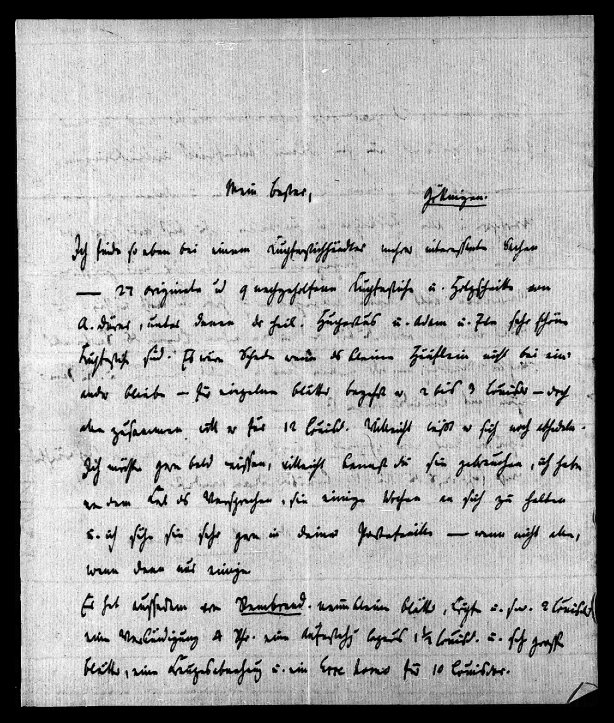 Mein bester, Göttingen.
Ich finde so eben bei einem Kupferstichhändler mehrere interessante Sachen
— 27 originale und 9 nachgeholfene Kupferstiche u. Holzschnitte von
A. Dürer, unter denen der heil. u. Adam u. Eva sehr schöne
Kupferstiche sind. Es wäre Schade wenn das kleine Häuflein nicht bei ein-
ander bliebe — für einzelne blätter begehrt er 2 bis 3 Louisdor — doch
alle zusammen will er für 12 Louisd. Vielleicht läßt er sich noch
Ich möchte gern bald wissen, vielleicht kannst du sie gebrauchen, ich habe
von dem Kerl das Versprechen, sie einige Wochen an sich zu halten
u. ich sehe sie sehr gern in deinem Portefeuille — wenn nicht alle,
wenn denn nur einige
Er hat ausserdem von Rembrand. neun kleine blätter, Köpfe u. s. w. 2 Louisdor
eine Verkündigung eine 1½ Louisd. u. sehr grosse
blätter, eine Kreuzabnehmung u. ein Ecce homo für 10 Louisdor.